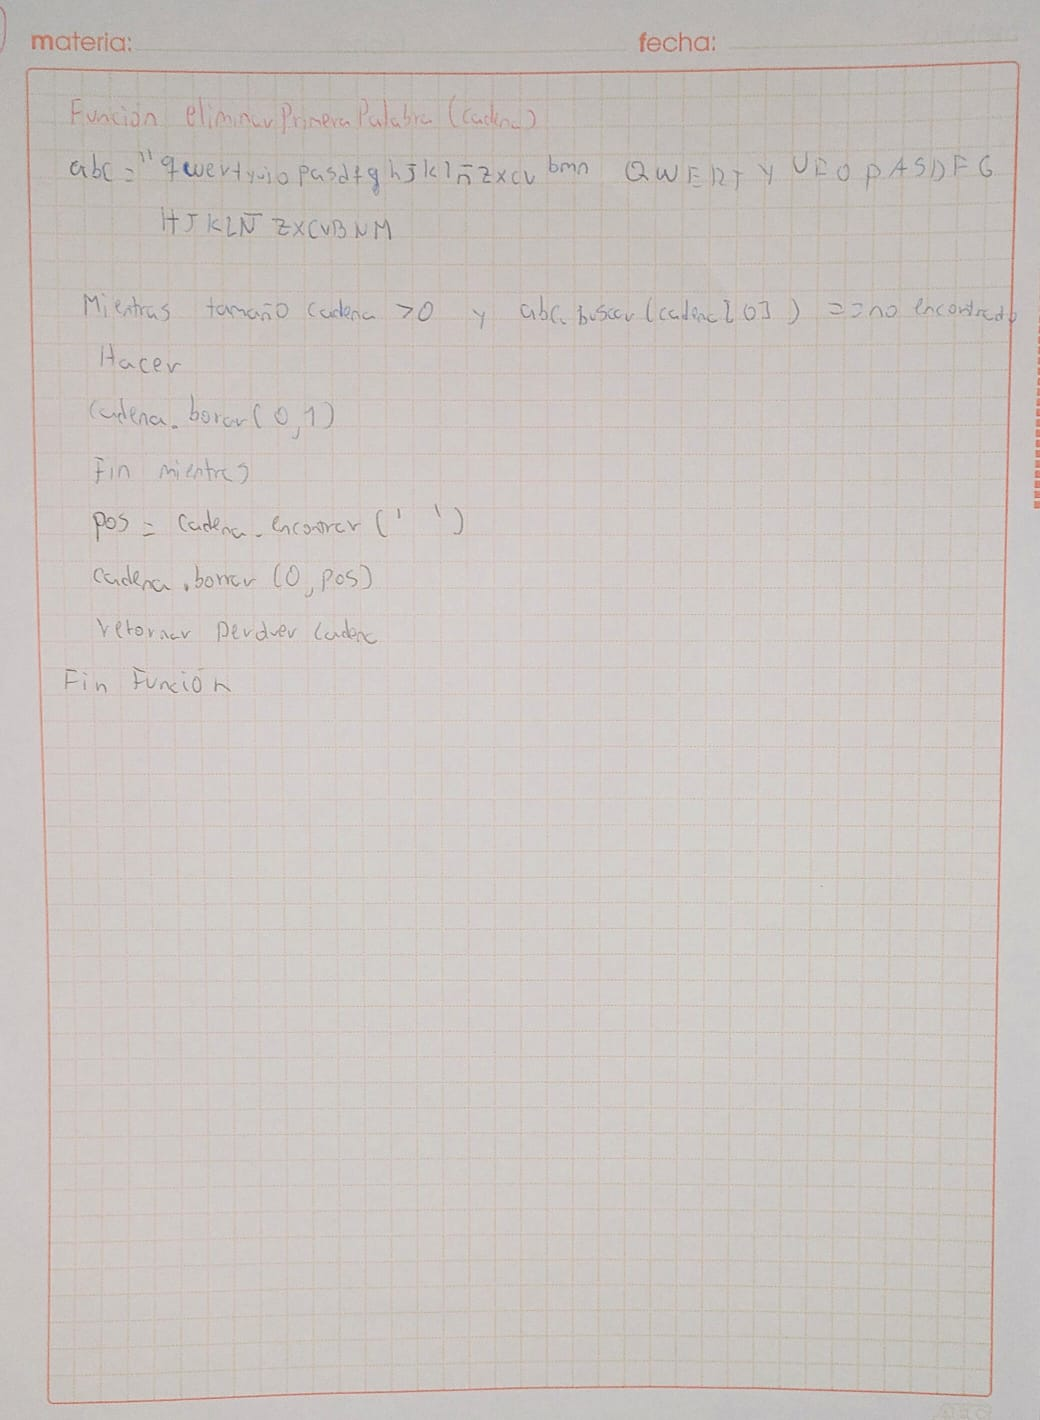 materia: fecha:
Función eliminar Primera Palabra (cadena)
abc = "qwertyuiopasdfghjklñzxcv bmn QWERTYUIOPASDFG
HJKLÑ ZXCVBNM
Mientras tamaño cadena >0 y abc. buscar (cadena[0]) == no encontrado
Hacer
cadena. borar (0,1)
Fin mientras
pos = cadena.encontrar (' ')
cadena.borrar (0, pos)
retornar cadena
Fin Función